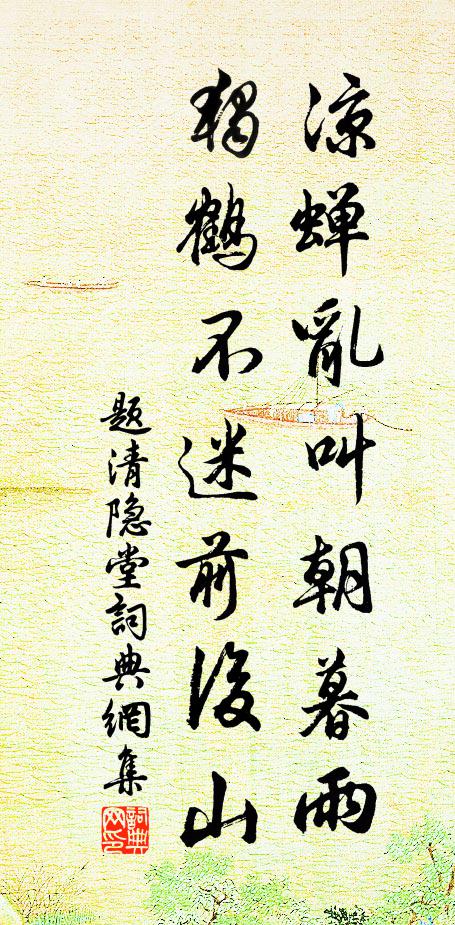 凉蝉亂叫朝暮雨
獨鶴不迷前後山
题清隐堂詞典網集
詞典网印